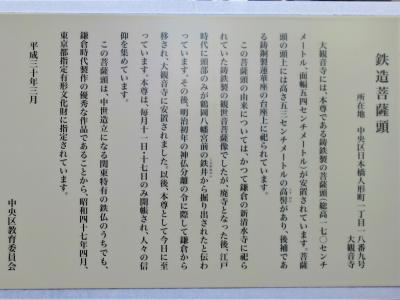 鉄造菩薩頭
所在地　中央区日本橋人形町一丁目一八番九号
大観音寺
大観音寺には、本尊である鋳鉄製の菩薩頭(総高一七〇センチ
メートル、面幅五四センチメートル)が安置されています。菩薩
頭の頭上には高さ五三センチメートルの高髻があり、後補であ
る鋳銅製蓮華座の台座上に祀られています。
この菩薩頭の由来については、かつて鎌倉の新清水寺に祀ら
れていた鋳鉄製の観世音菩薩像でしたが、廃寺となった後、江戸
時代に頭部のみが鶴岡八幡宮前の鉄井から掘り出されたと伝わ
っています。その後、明治初年の神仏分離の令に際して鎌倉から
移され、大観音寺に安置されました。以後、本尊として今日に至
っています。本尊は、毎月十一日・十七日のみ開帳され、人々の信
仰を集めています。
この菩薩頭は、中世造立になる関東特有の鉄仏のうちでも、
鎌倉時代製作の優秀な作品であることから、昭和四十七年四月、
東京都指定有形文化財に指定されています。
平成三十年三月
中央区教育委員会